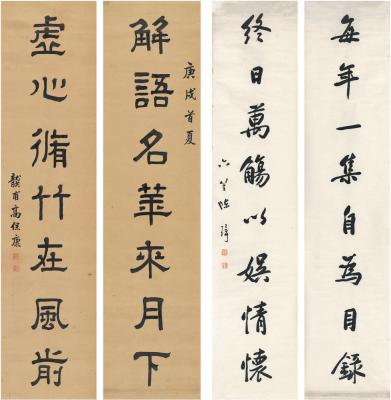 每年一集自為目錄
終日萬觴以娱情懷
解語名華來月下
庚戌首夏
虛心脩竹在風前
龔甫高保康